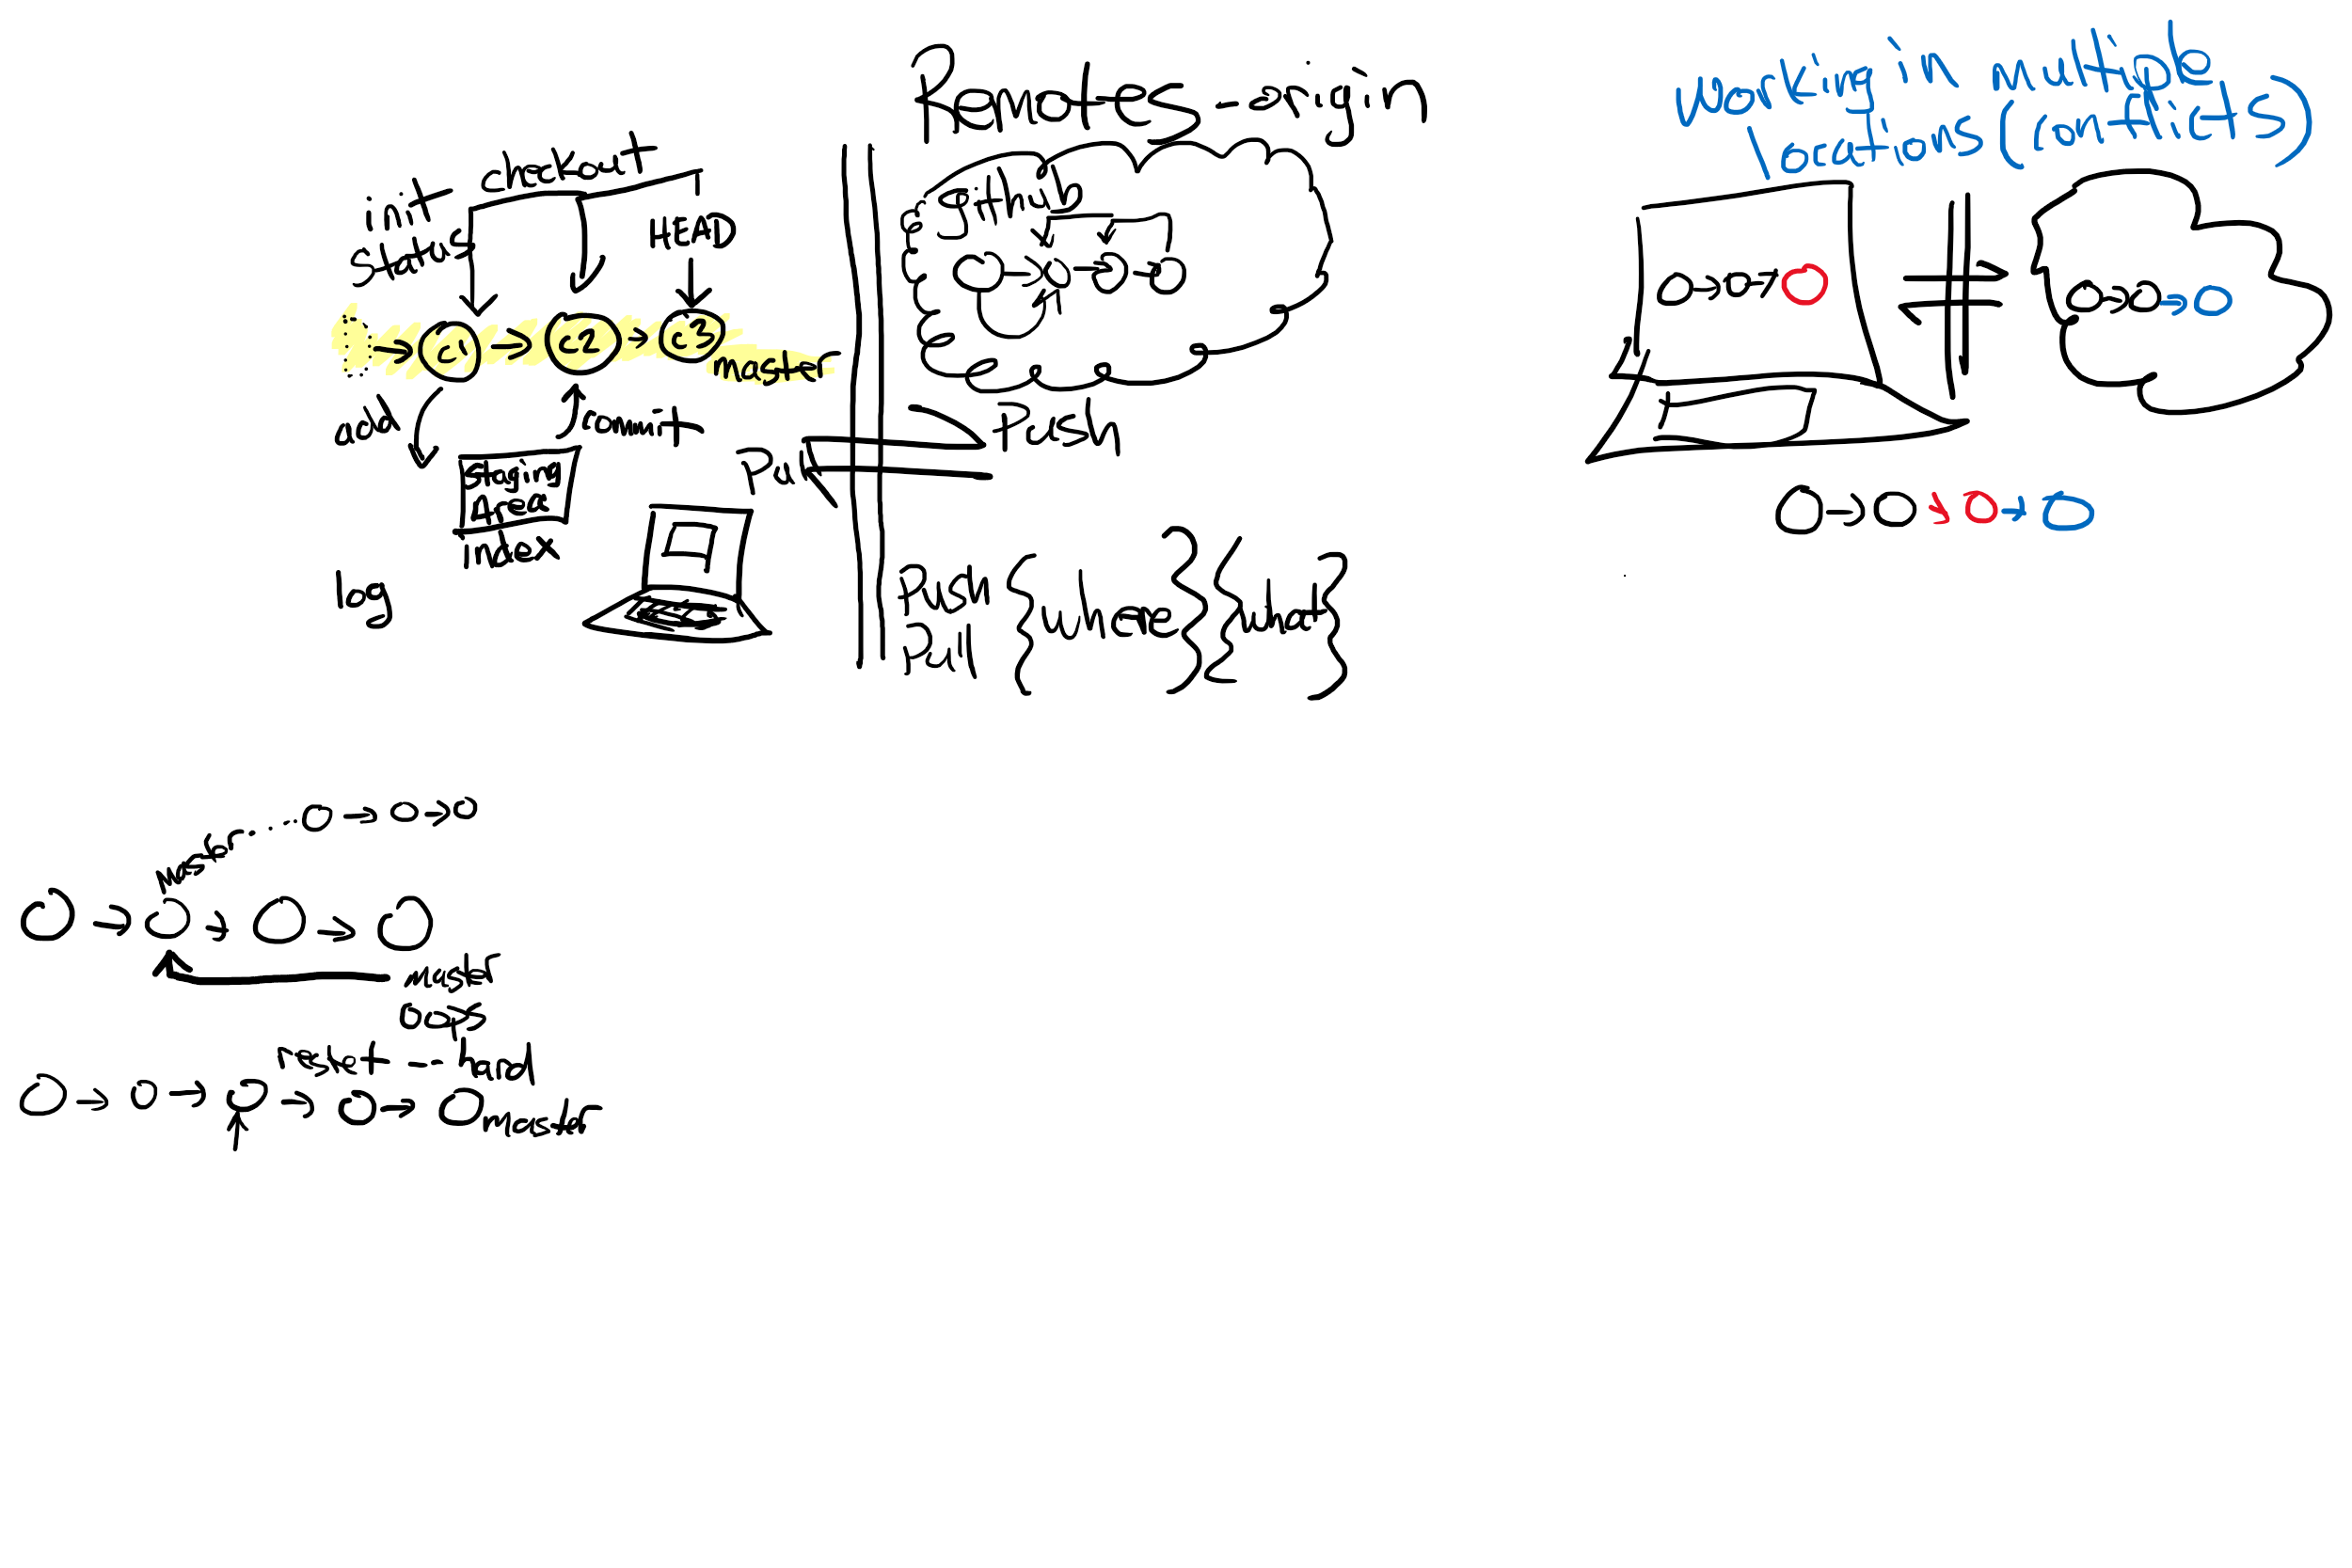 init
status
checkout
HEAD
c1
c2
c3
master
add
commit
Staging
Area
index
log
Remotes - origin
github
Push
Pul
Push
Pull
{Where} {what}
working in multiple
locations (conflicts)
master
master
oops
reset --hard
master